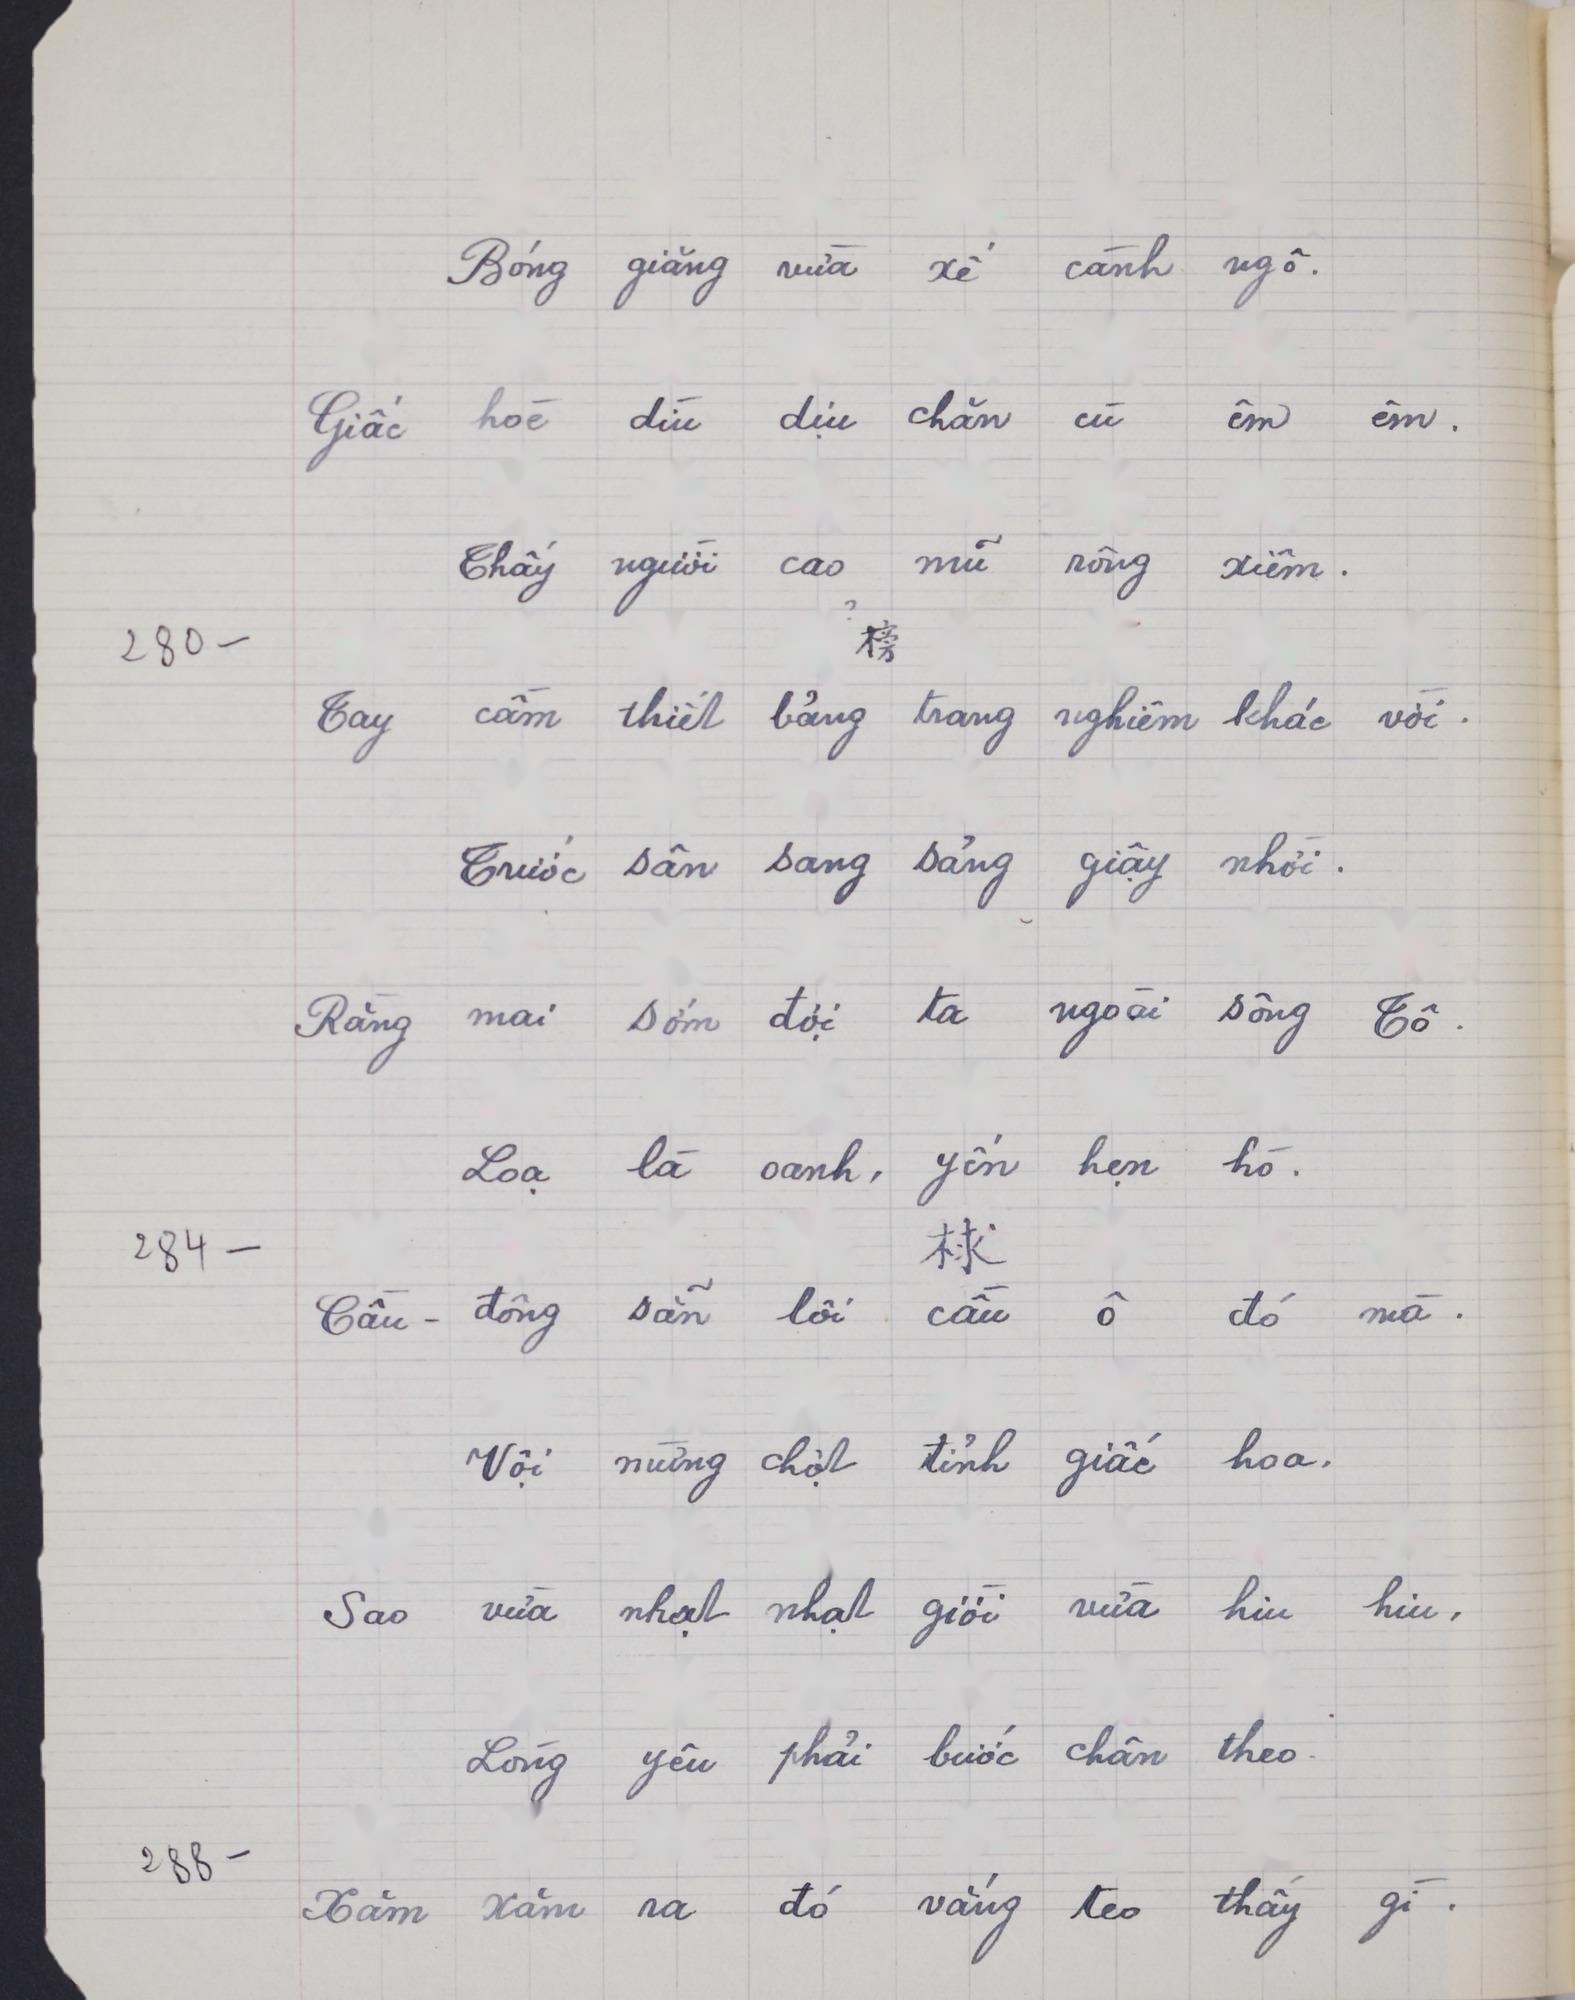 Bóng giăng vừa xế cành ngô.
Giấc hoè dìu dịu chăn cù êm êm.
Thấy người cao mũ rông xiêm.
?
280- 榜
Tay cầm thiết bảng trang nghiêm khác vời.
Trước sân sang sảng giậy nhời.
Rằng mai sớm đợi ta ngoài sông Tô.
Loạ là oanh, yến hẹn hò.
284- 梂
Cầu- đông sẵn lối cầu ô đó mà.
Vội nừng chợt tỉnh giấc hoa.
Sao vừa nhạt nhạt giời vừa hiu hiu,
Lòng yêu phải bước chân theo.
288-
Xăm xăm ra đó vắng teo thấy gì.